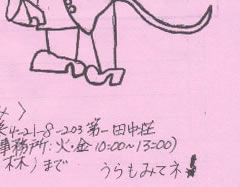 〉
4-21-8-203 第一田中荘
事務所: 火・金 10:00〜13:00)
森) まで うらもみてネ